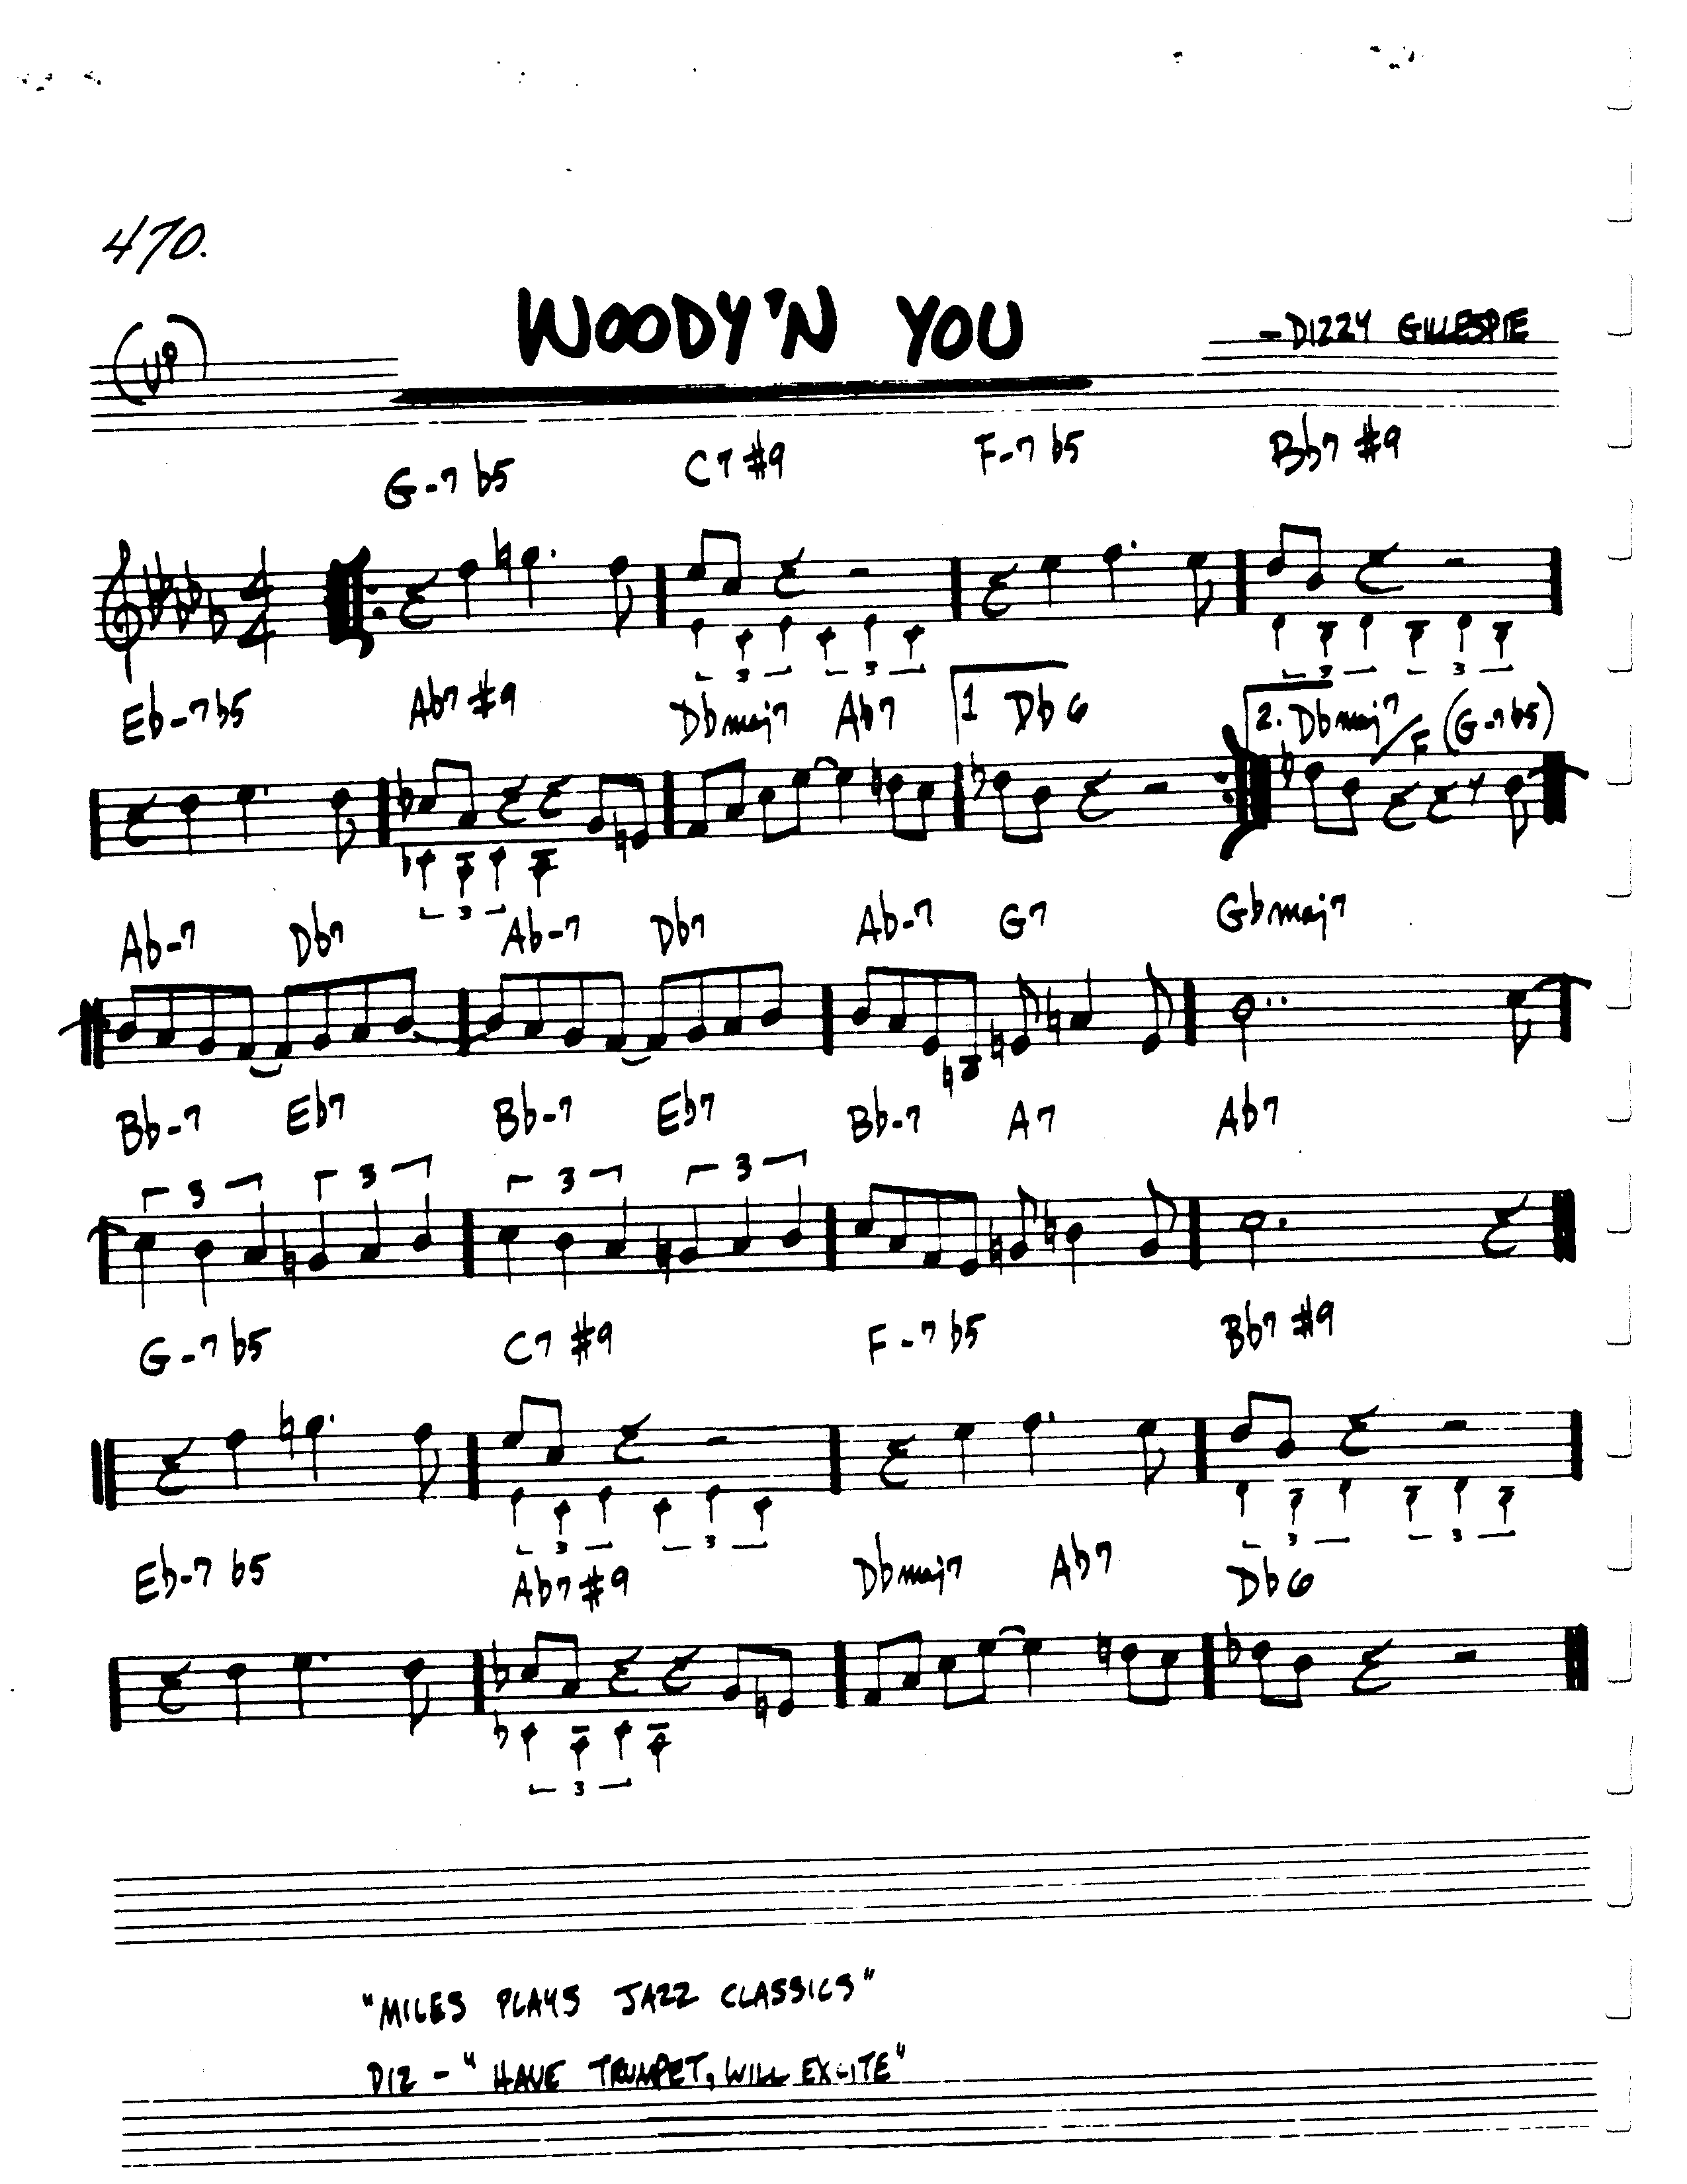 470.
(UP)
WOODY'N YOU
- DIZZY GILLESPIE
G-7 b5 C7 #9 F-7 b5 Bb7 #9
3 3 3 3
Eb-7b5 Ab7 #9 Dbmaj7 Ab7 1 Db6 2. Dbmaj7/F (G-7b5)
3
Ab-7 Db7 Ab-7 Db7 Ab-7 G7 Gbmaj7
Bb-7 Eb7 Bb-7 Eb7 Bb-7 A7 Ab7
3 3 3 3
G-7 b5 C7 #9 F-7 b5 Bb7 #9
3 3 3 3
Eb-7 b5 Ab7 #9 Dbmaj7 Ab7 Db6
3
"MILES PLAYS JAZZ CLASSICS"
DIZ - "HAVE TRUMPET, WILL EXCITE"